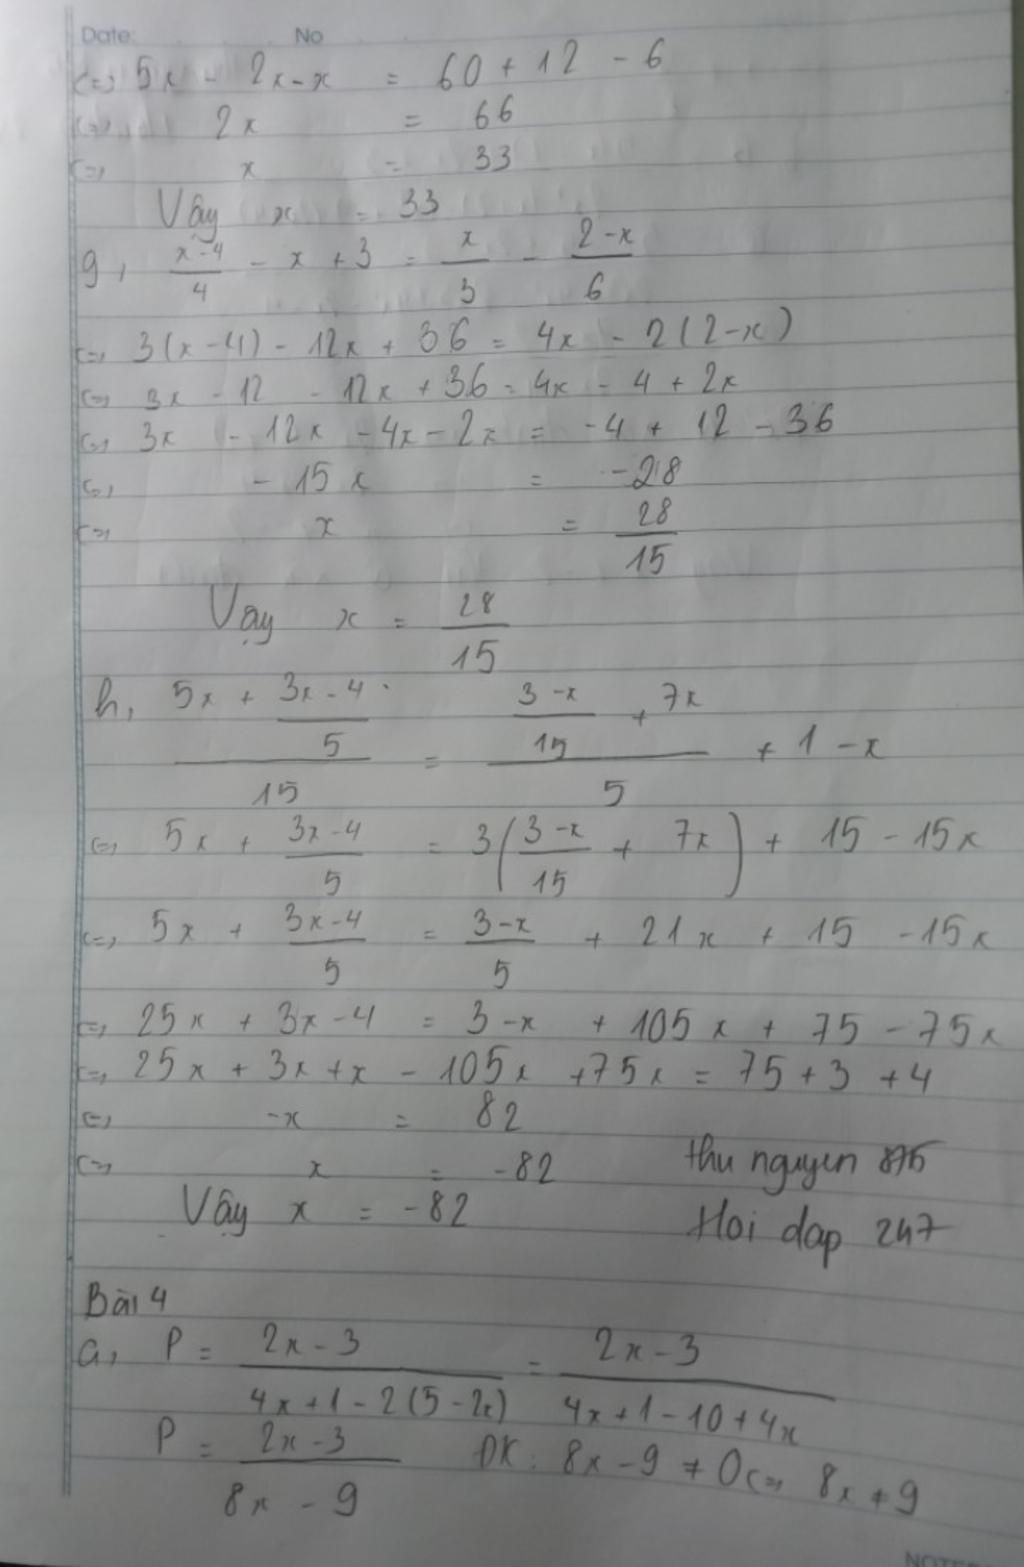 Date: No
<=> 5x - 2x - x = 60 + 12 - 6
<=> 2x = 66
<=> x = 33
Vậy x = 33
g, (x-4)/4 - x + 3 = x/3 - (2-x)/6
<=> 3(x-4) - 12x + 36 = 4x - 2(2-x)
<=> 3x - 12 - 12x + 36 = 4x - 4 + 2x
<=> 3x - 12x - 4x - 2x = -4 + 12 - 36
<=> -15x = -28
<=> x = 28/15
Vậy x = 28/15
h, (5x + (3x-4)/5)/15 = ((3-x)/15 + 7x)/5 + 1 - x
<=> 5x + (3x-4)/5 = 3((3-x)/15 + 7x) + 15 - 15x
<=> 5x + (3x-4)/5 = (3-x)/5 + 21x + 15 - 15x
<=> 25x + 3x - 4 = 3 - x + 105x + 75 - 75x
<=> 25x + 3x + x - 105x + 75x = 75 + 3 + 4
<=> -x = 82
<=> x = -82 thu nguyen 875
Vậy x = -82 Hoi dap 247
Bài 4
a, P = (2x-3)/(4x+1-2(5-2x)) = (2x-3)/(4x+1-10+4x)
P = (2x-3)/(8x-9) ĐK: 8x-9 ≠ 0 <=> 8x ≠ 9